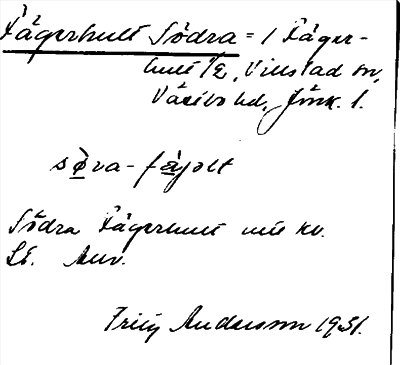 Fågerhult Södra = 1 Fåger-
hult 1/2, Villstad sn,
Västbo hd, Jönk. l.
Södra Fågerhult
Anv.
Fritz Andersson 1931.